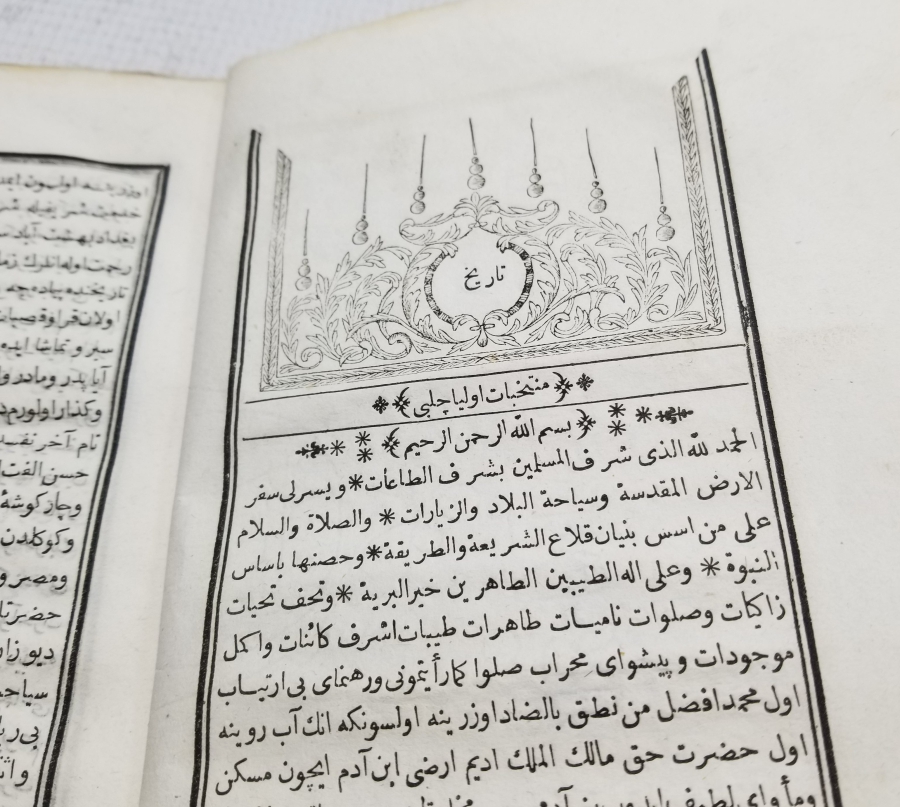 تاريخ
منتخبات اوليا چلبى
بسم الله الرحمن الرحيم
الحمد لله الذى شرف المسلمين بشرف الطاعات * ويسرلى سفر
الارض المقدسة وسياحة البلاد والزيارات * والصلاة والسلام
على من اسس بنيان قلاع الشريعة والطريقة * وحصنها باساس
النبوة * وعلى اله الطيبين الطاهرين خير البرية * وتحف تحيات
زاكيات وصلوات ناميات طاهرات طيبات اشرف كائنات واكمل
موجودات و پيشواى محراب صلوا كما رأيتمونى ورهنماى بى ارتياب
اول محمد افضل من نطق بالضاد اوزرينه اولسونكه انك آب روينه
اول حضرت حق مالك الملك اديم ارضى ابن آدم ايچون مسكن
ومأواى لطيف ايدوب بنى آدم
اوزرينه اولمون
بغداد بهشت آباد
رحمت اوله انلرك
تاريخنده پياده
سير و تماشا ايده
آيا پدر ومادر
وكذار اولورم
نام آخر نفسده
حسن الفت
وچار كوشۀ
وكوكلدن
ومصر و
حضرت
ديو زار
سياحت